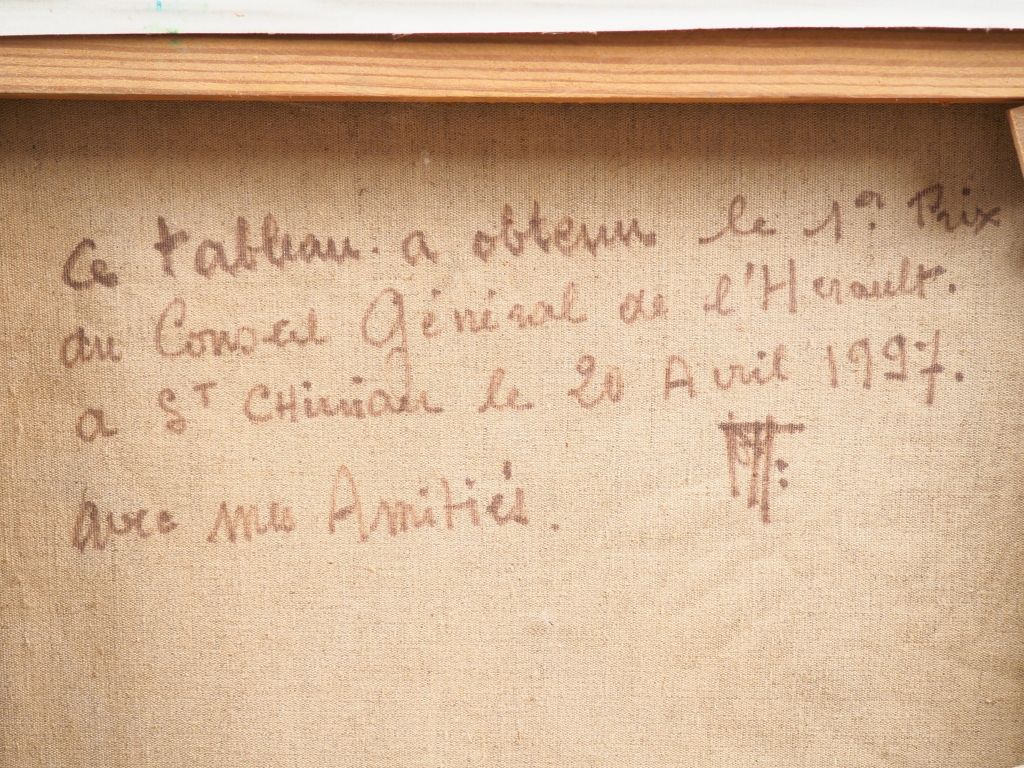 Ce tableau a obtenu le 1er Prix
du Conseil Général de l'Herault.
a St CHinian le 20 Avril 1997.
avec mes Amitiés.